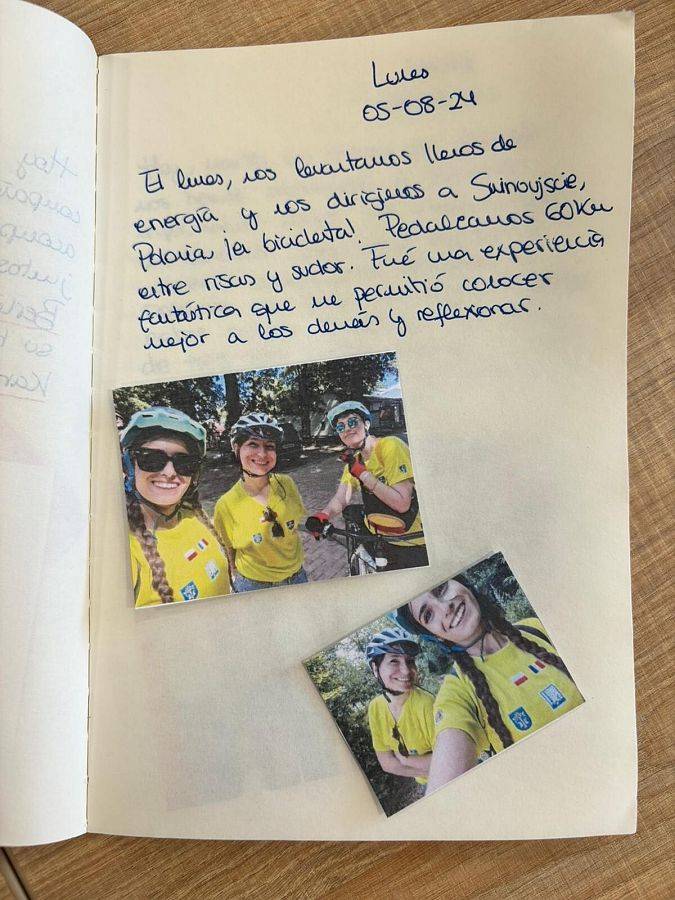 Lunes
05-08-24
El lunes, nos levantamos llenos de
energía y nos dirigimos a Swinoujscie,
Polonia ¡en bicicleta!. Pedaleamos 60Km
entre risas y sudor. Fué una experiencia
fantástica que me permitió conocer
mejor a los demás y reflexionar.
Hoy